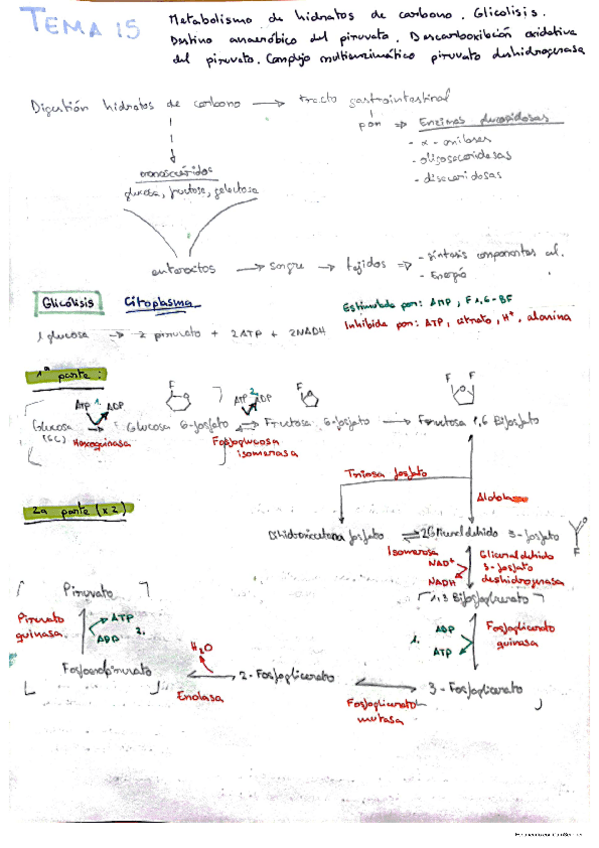 TEMA 15
Metabolismo de hidratos de carbono. Glicolisis.
Destino anaeróbico del piruvato. Descarboxilación oxidativa
del piruvato. Complejo multienzimático piruvato deshidrogenasa
Digestión hidratos de carbono → tracto gastrointestinal
por ⇒ Enzimas glucosidasas
- α - amilasas
- oligosacaridasas
- disacaridasas
monosacáridos
glucosa, fructosa, galactosa
enterocitos → sangre → tejidos ⇒ - síntesis componentes cel.
- Energía
Glicólisis Citoplasma
Estimulada por: AMP, F1,6-BF
Inhibida por: ATP, citrato, H+, alanina
1 glucosa → 2 piruvato + 2ATP + 2NADH
1ª parte:
ATP 1. ADP
F
ATP 2. ADP
F
F F
Glucosa → Glucosa 6-fosfato ⇌ Fructosa 6-fosfato → Fructosa 1,6 Bifosfato
(6C) Hexoquinasa
Fosfoglucosa
isomerasa
Triosa fosfato
Aldolasa
2a parte (x2)
Dihidroxiacetona fosfato ⇌ 2Gliceraldehido 3-fosfato
Isomerasa
F
NAD+
NADH
Gliceraldehido
3-fosfato
deshidrogenasa
1,3 Bifosfoglicerato
Piruvato
Piruvato
quinasa
ATP
ADP 2.
1. ADP
ATP
Fosfoglicerato
quinasa
H2O
Fosfoenolpiruvato
2-Fosfoglicerato
3-Fosfoglicerato
Enolasa
Fosfoglicerato
mutasa